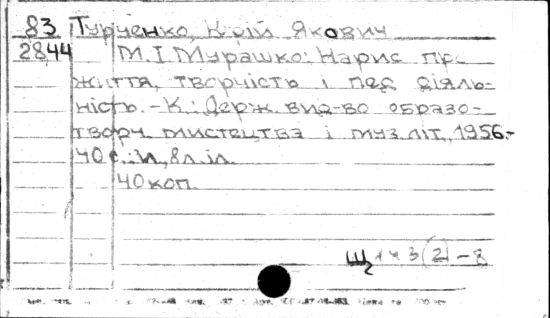 83 Турченко, Юрій Якович
2844 М.І. Мурашко: Нарис про
життя, творчість і пед діяль-
ність. - К.: Держ. вид-во образо-
творч. мистецтва і муз літ, 1956.-
40 с.: іл, 8 л. іл.
40 коп.
Щ143(2)-8